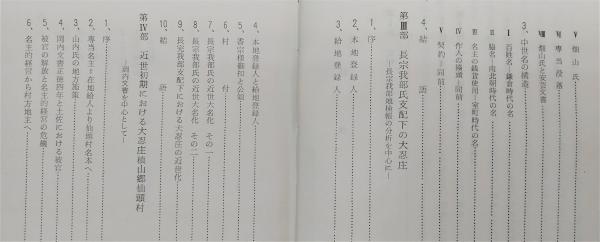 V 畑山氏
VI 畑山氏と安芸文書
VII 専当没落
3、中世名の構造
I 百姓名=鎌倉時代の名
II 脇名=南北朝時代の名
III 名主の銭貨使用=室町時代の名
IV 作人の擡頭=同前
V 契約=同前
4、結語
第Ⅲ部 長宗我部氏支配下の大忍庄
―長宗我部地検帳の分析を中心に―
1、序
2、本地登録人
3、給地登録人
4、本地登録人と給地登録人
5、香宗様御扣と公領
6、村付
7、長宗我部氏の近世大名化 その一
8、長宗我部氏の近世大名化 その二
9、長宗我部氏支配下における大忍庄の近世化
10、結語
第Ⅳ部 近世初期における大忍庄槙山郷仙頭村
―岡内文書を中心として―
1、序
2、専当名主=在地給人より仙頭村名本へ
3、山内氏の地方施策
4、岡内文書正徳四年と土佐における被官
5、被官の解放と名主的経営の危機
6、名主的経営から村方地主へ